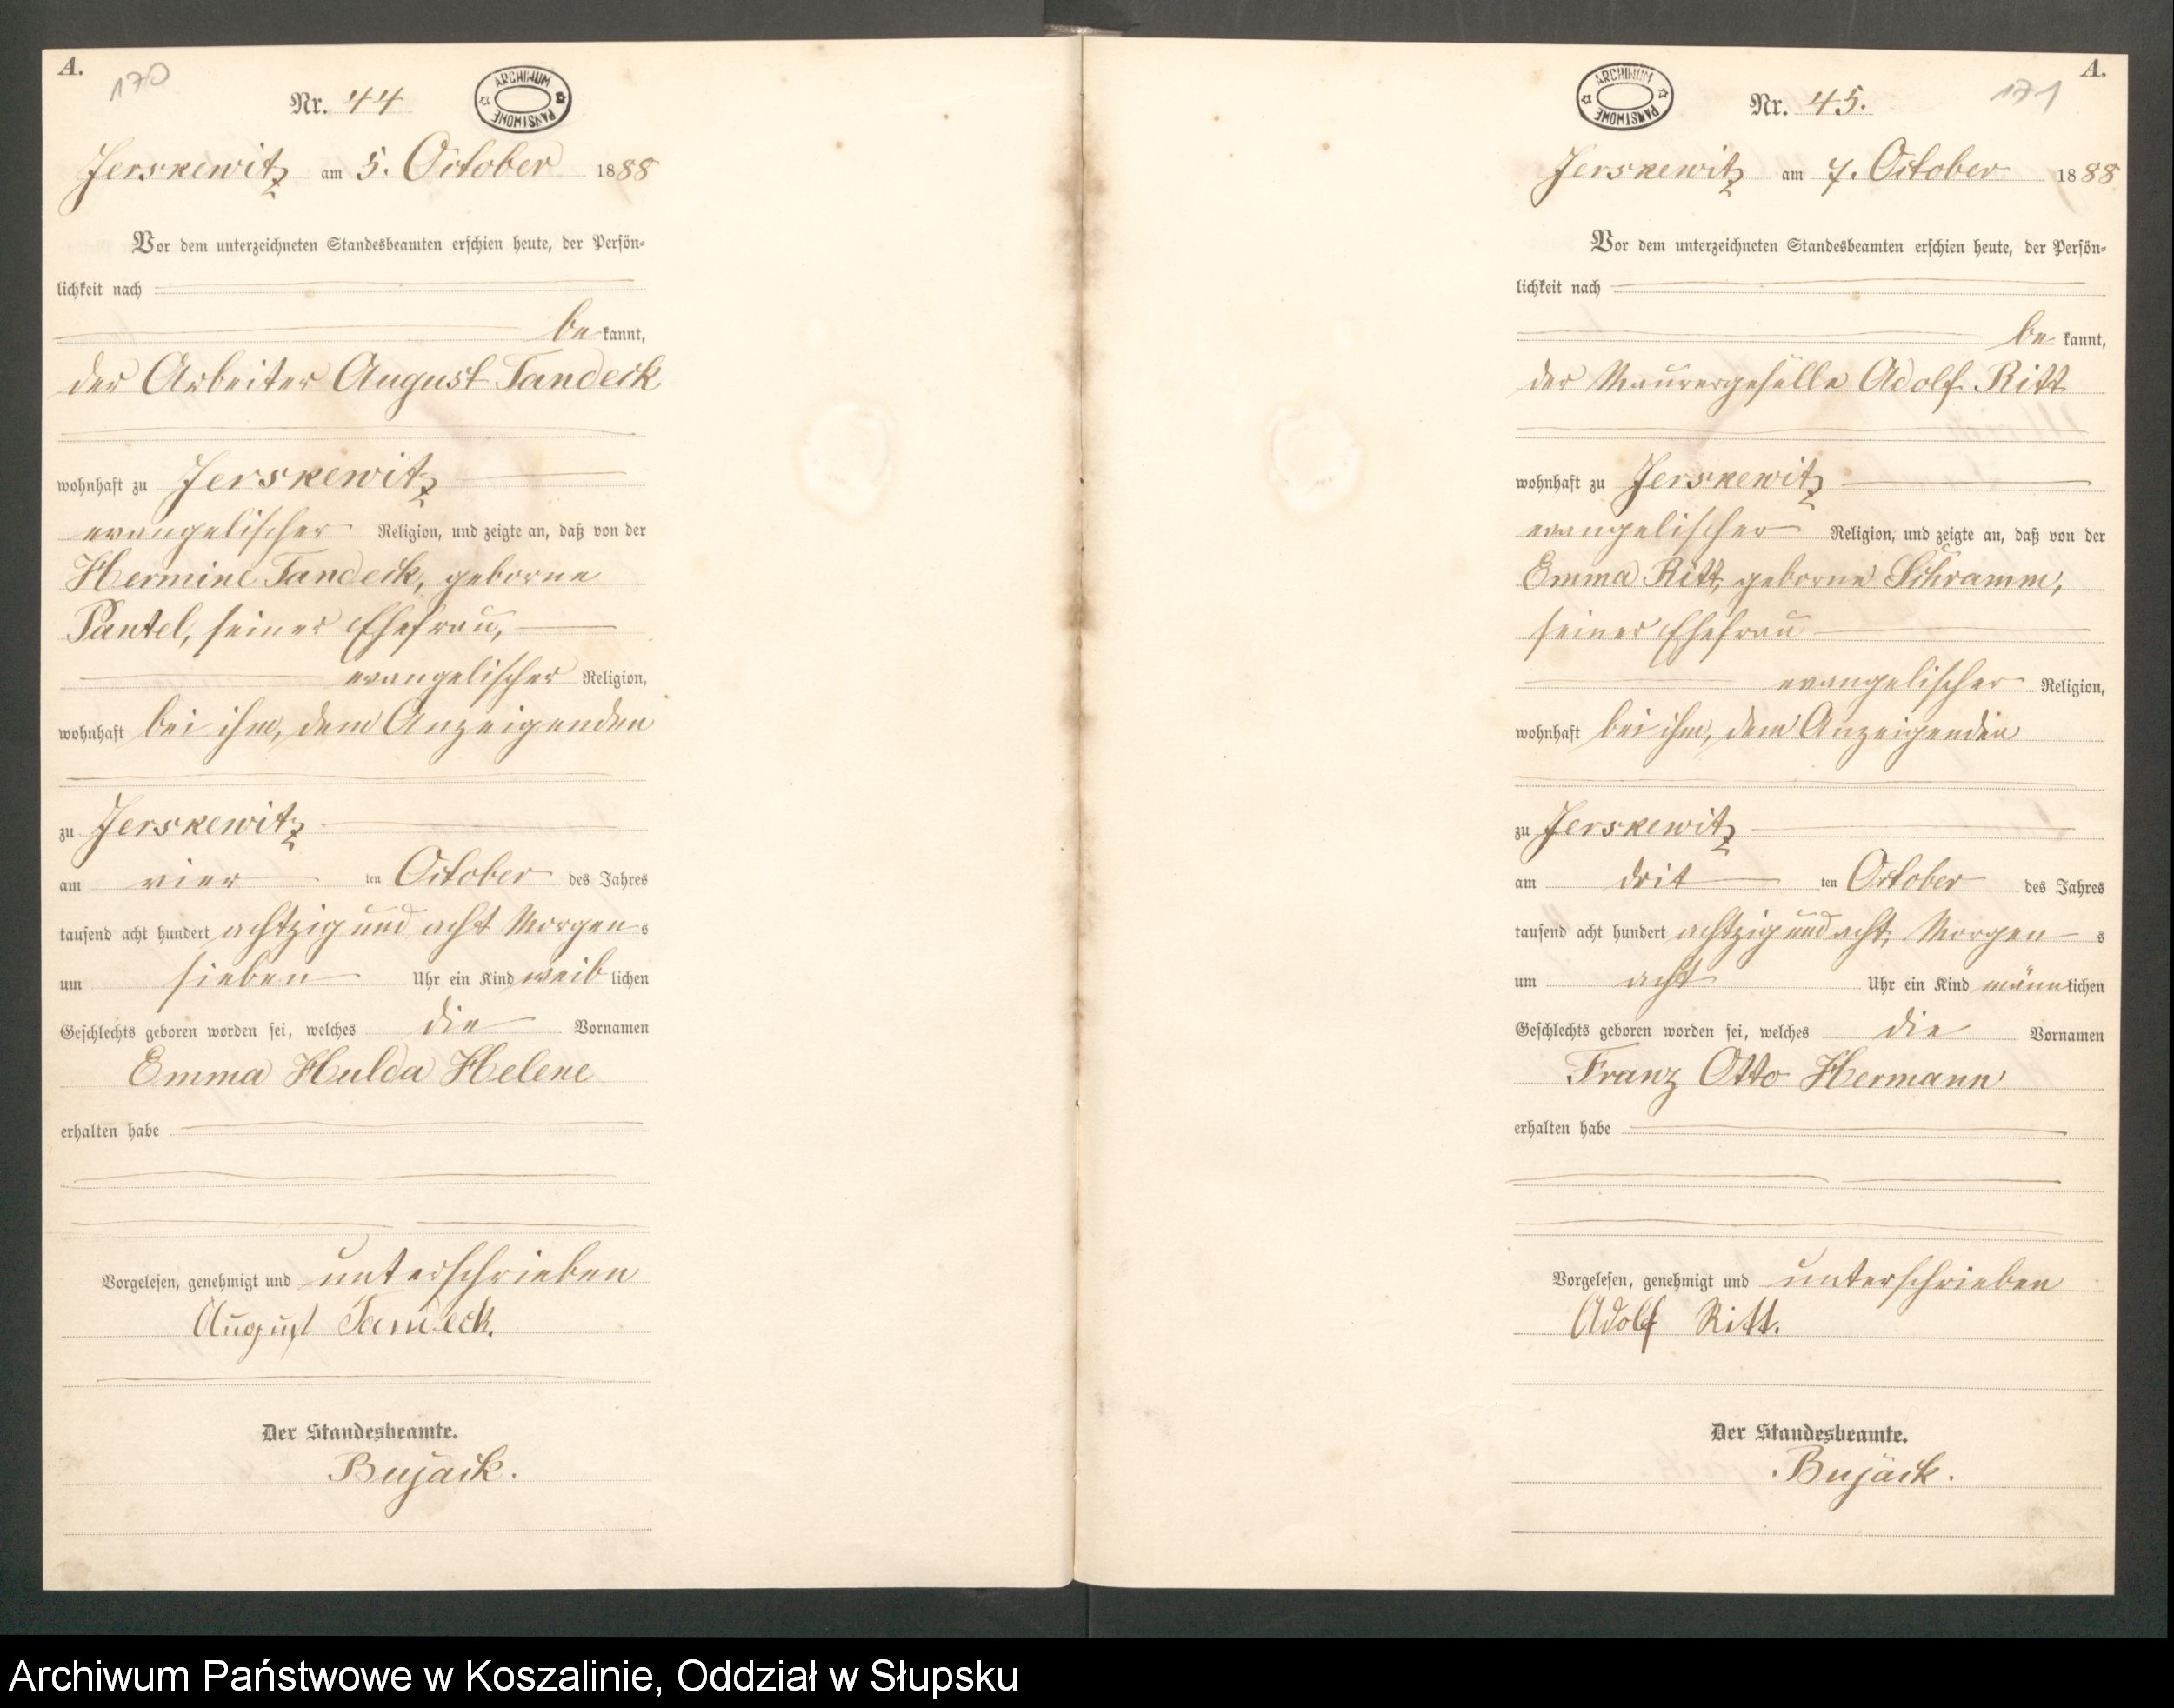 A.
170
Nr. 44
ARCHIWUM PAŃSTWOWE
Jerskewitz am 5. October 1888
Vor dem unterzeichneten Standesbeamten erschien heute, der Persön-
lichkeit nach
be kannt,
der Arbeiter August Tandeck
wohnhaft zu Jerskewitz
evangelischer Religion, und zeigte an, daß von der
Hermine Tandeck, geborne
Pantel, seiner Ehefrau,
evangelischer Religion,
wohnhaft bei ihm, dem Anzeigenden
zu Jerskewitz
am vier ten October des Jahres
tausend acht hundert achtzig und acht Morgen s
um sieben Uhr ein Kind weib lichen
Geschlechts geboren worden sei, welches die Vornamen
Emma Hulda Helene
erhalten habe
Vorgelesen, genehmigt und unterschrieben
August Tandeck.
Der Standesbeamte.
Bujack.
A.
171
ARCHIWUM PAŃSTWOWE
Nr. 45.
Jerskewitz am 7. October 1888
Vor dem unterzeichneten Standesbeamten erschien heute, der Persön-
lichkeit nach
be kannt,
der Maurergeselle Adolf Ritt
wohnhaft zu Jerskewitz
evangelischer Religion, und zeigte an, daß von der
Emma Ritt, geborne Schramm,
seiner Ehefrau
evangelischer Religion,
wohnhaft bei ihm, dem Anzeigenden
zu Jerskewitz
am drit ten October des Jahres
tausend acht hundert achtzig und acht, Morgen s
um acht Uhr ein Kind männ lichen
Geschlechts geboren worden sei, welches die Vornamen
Franz Otto Hermann
erhalten habe
Vorgelesen, genehmigt und unterschrieben
Adolf Ritt.
Der Standesbeamte.
Bujack.
Archiwum Państwowe w Koszalinie, Oddział w Słupsku